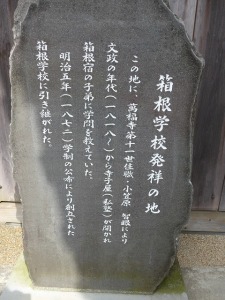 箱根学校発祥の地
この地に、萬福寺第十一世住職・小笠原 智眼により
文政の年代（一八一八〜）から寺子屋（私塾）が開かれ
箱根宿の子弟に学問を教えていた。
明治五年（一八七二）学制の公布により創立された
箱根学校に引き継がれた。